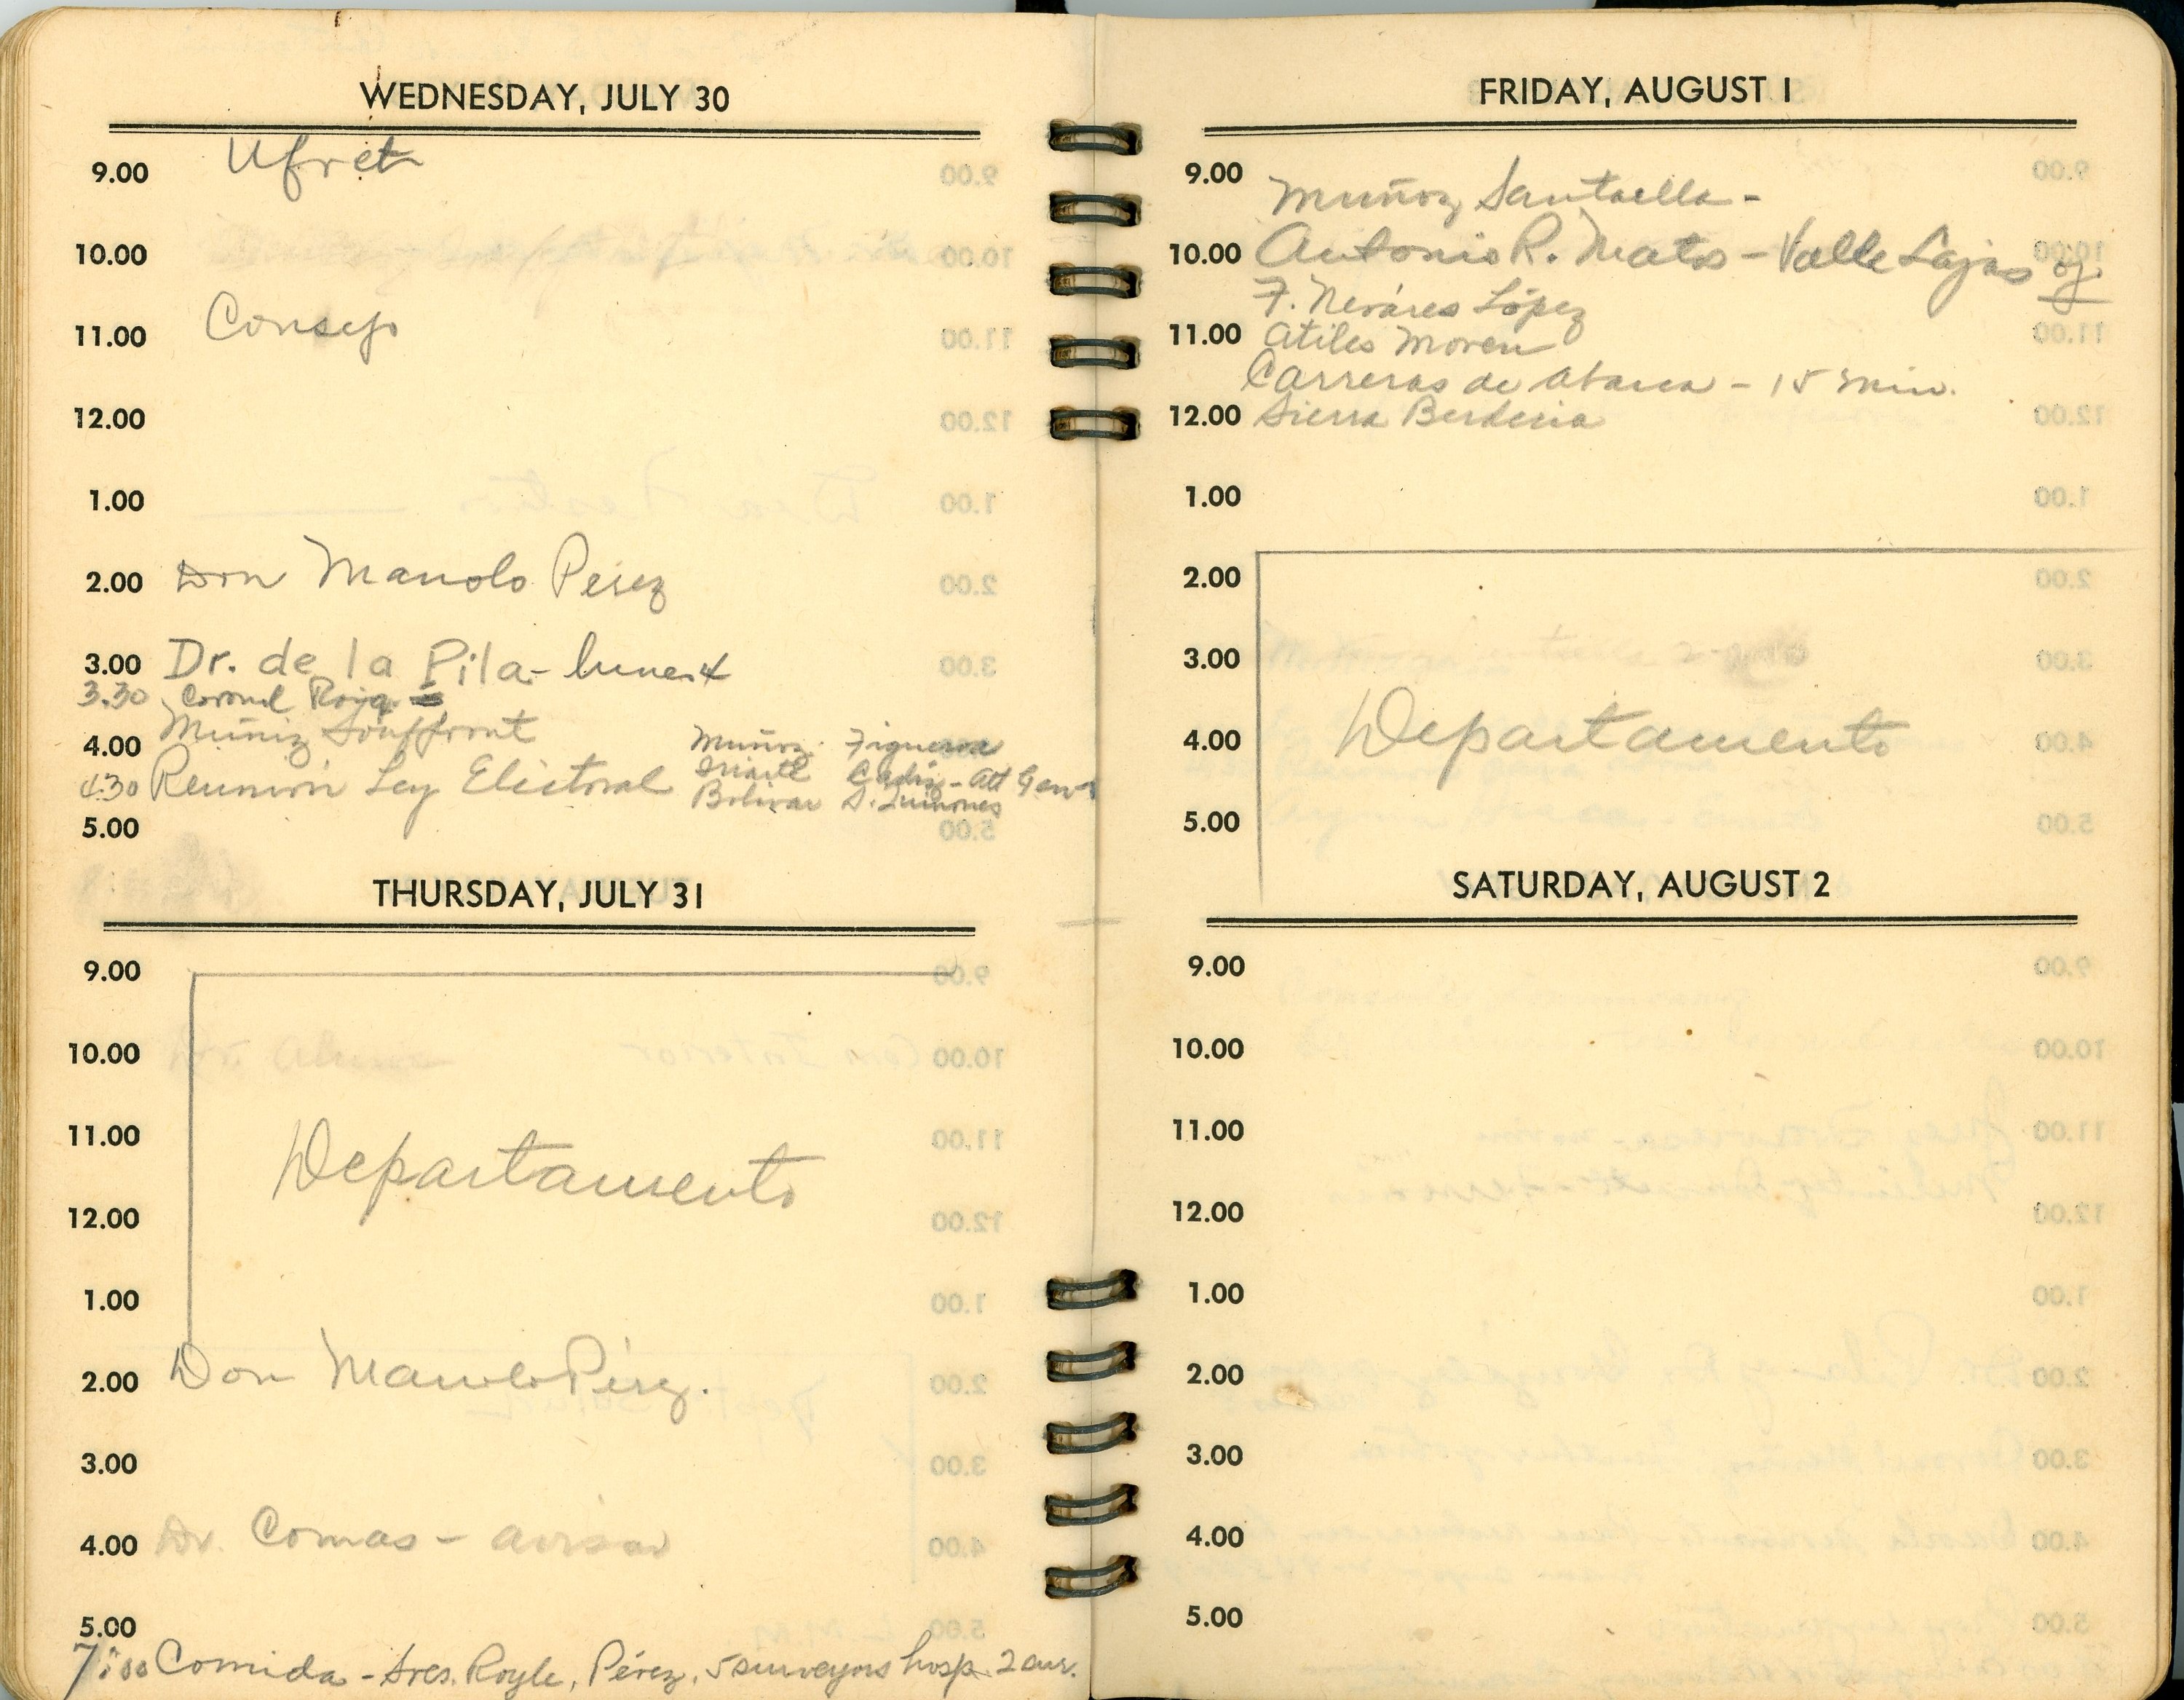 WEDNESDAY, JULY 30
Ufret
9.00
10.00
Consejo
11.00
12.00
1.00
2.00 Don Manolo Perez
3.00 Dr. de la Pila - lunes 4
3.30 Coronel Roig
Muñiz Souffront
4.00
4:30 Reunion Ley Electoral
Muñoz Figueroa
Iriarte Cadiz - Att Gen
Bolivar S. Quinones
5.00
THURSDAY, JULY 31
9.00
10.00
11.00
Departamento
12.00
1.00
2.00 Don Manolo Pérez.
3.00
4.00 Dr. Comas - avisar
5.00
7:00 Comida - Sres. Royle, Pérez, 5 surveyors hosp. 2
FRIDAY, AUGUST 1
9.00
Muñoz Santaella -
10.00 Antonio R. Matos - Valle Lajas
F. Neváres López
11.00 Atiles Moreu
Carreras de Abarca - 15 min.
12.00 Sierra Berdecia
1.00
2.00
3.00
4.00 Departamento
5.00
SATURDAY, AUGUST 2
9.00
10.00
11.00
12.00
1.00
2.00
3.00
4.00
5.00